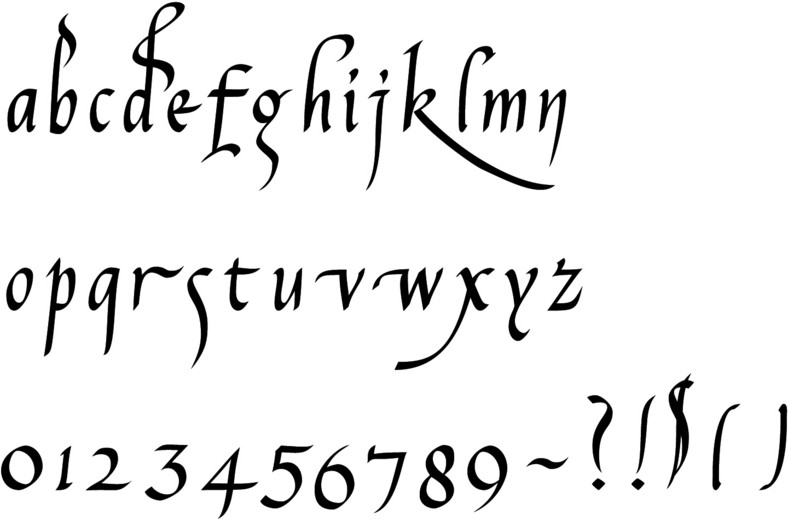 abcdefghijklmn
opqrstuvwxyz
0123456789~?!$()